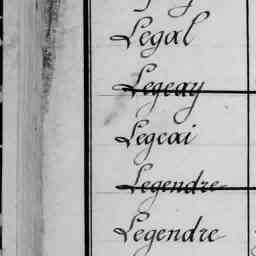 Legal
Legeay
Legeai
Legendre
Legendre